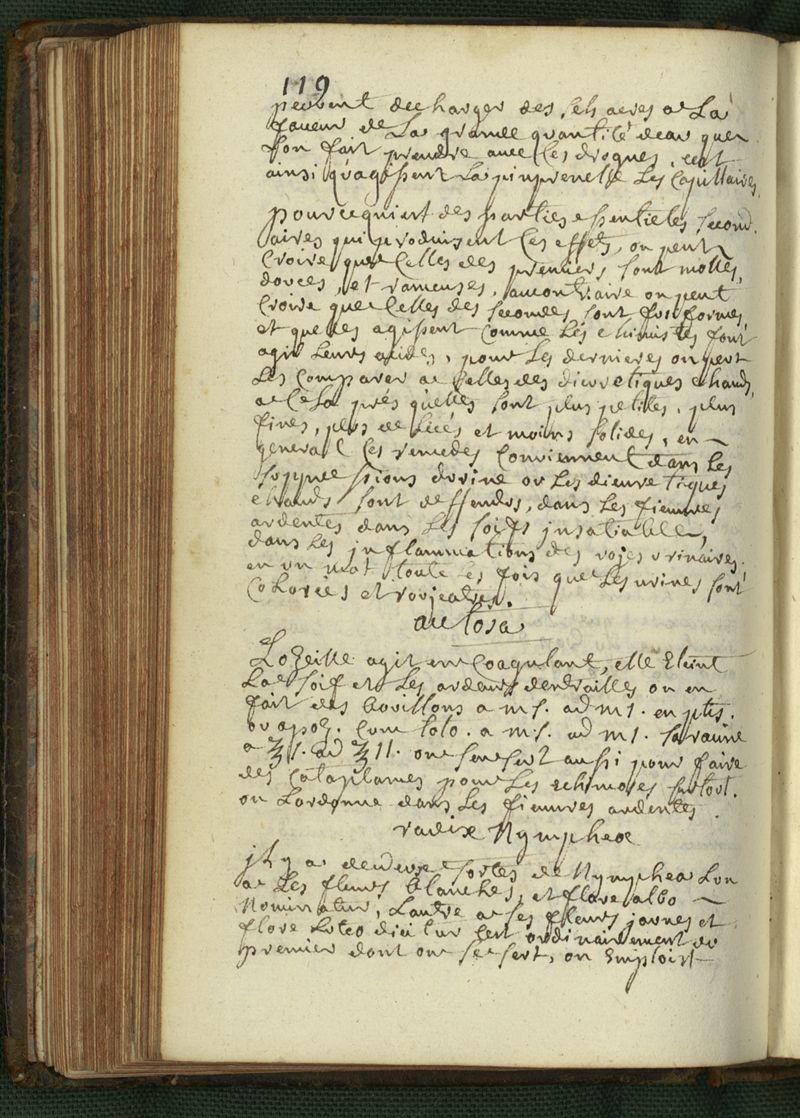 119
peuvent decharger des sels acres a La
faveur de La grande quantité deau que
Lon fait prendre avec Ces drogues, cest
ainsi q'uagissent La pinprenelle Les Capillaires,
pourcequiest des parties essentieles second
aires qui produisent Ces effets, on peut
Croire que Celles des premiers sont molles,
douces, et rameuses, aucontraire on peut
Croire que Celles des secondes sont fusiformes
et quelles agissent Comme Les chimistes font
agir Leurs acides, pour Les dernieres on peut
Les Comparer a Celles des diuretiques chauds,
a Cela prés quelles sont plus petites, plus
fines, plus deliées et moins solides, en
general Ces remedes Conviennent dans Les
suppressions durine ou Les diuretiques
chauds sont deffendus, dans Les fievres
ardentes dans Les soifs insatiables,
dans Les inflammations des voyes urinaires.
en un mot toute Les fois que Les urines sont
Colorées et rougeatres.
acetosa
Lozeille agit en Coagulant, elle Eteint
La soif et Les ardeurs dentrailles on en
fait des bouillons a m s. ad m 1. en ptis.
ou apoz. Cum toto. a m s. ad m 1. sa racine
a ℥ s. ad ℥ 11. on sen sert aussi pour faire
des Cataplames pour Les echimoses surtout.
on Lordonne dans Les fievres ardentes
radix Nympheæ
jl y a de deux sortes de Nymphea Lun
a Les fleurs blanches, et flore albo
Nominatur, Lautre a ses fleurs jaunes et
flore Luteo dicitur Cest ordinairement du
premier dont on se sert, on Emploist